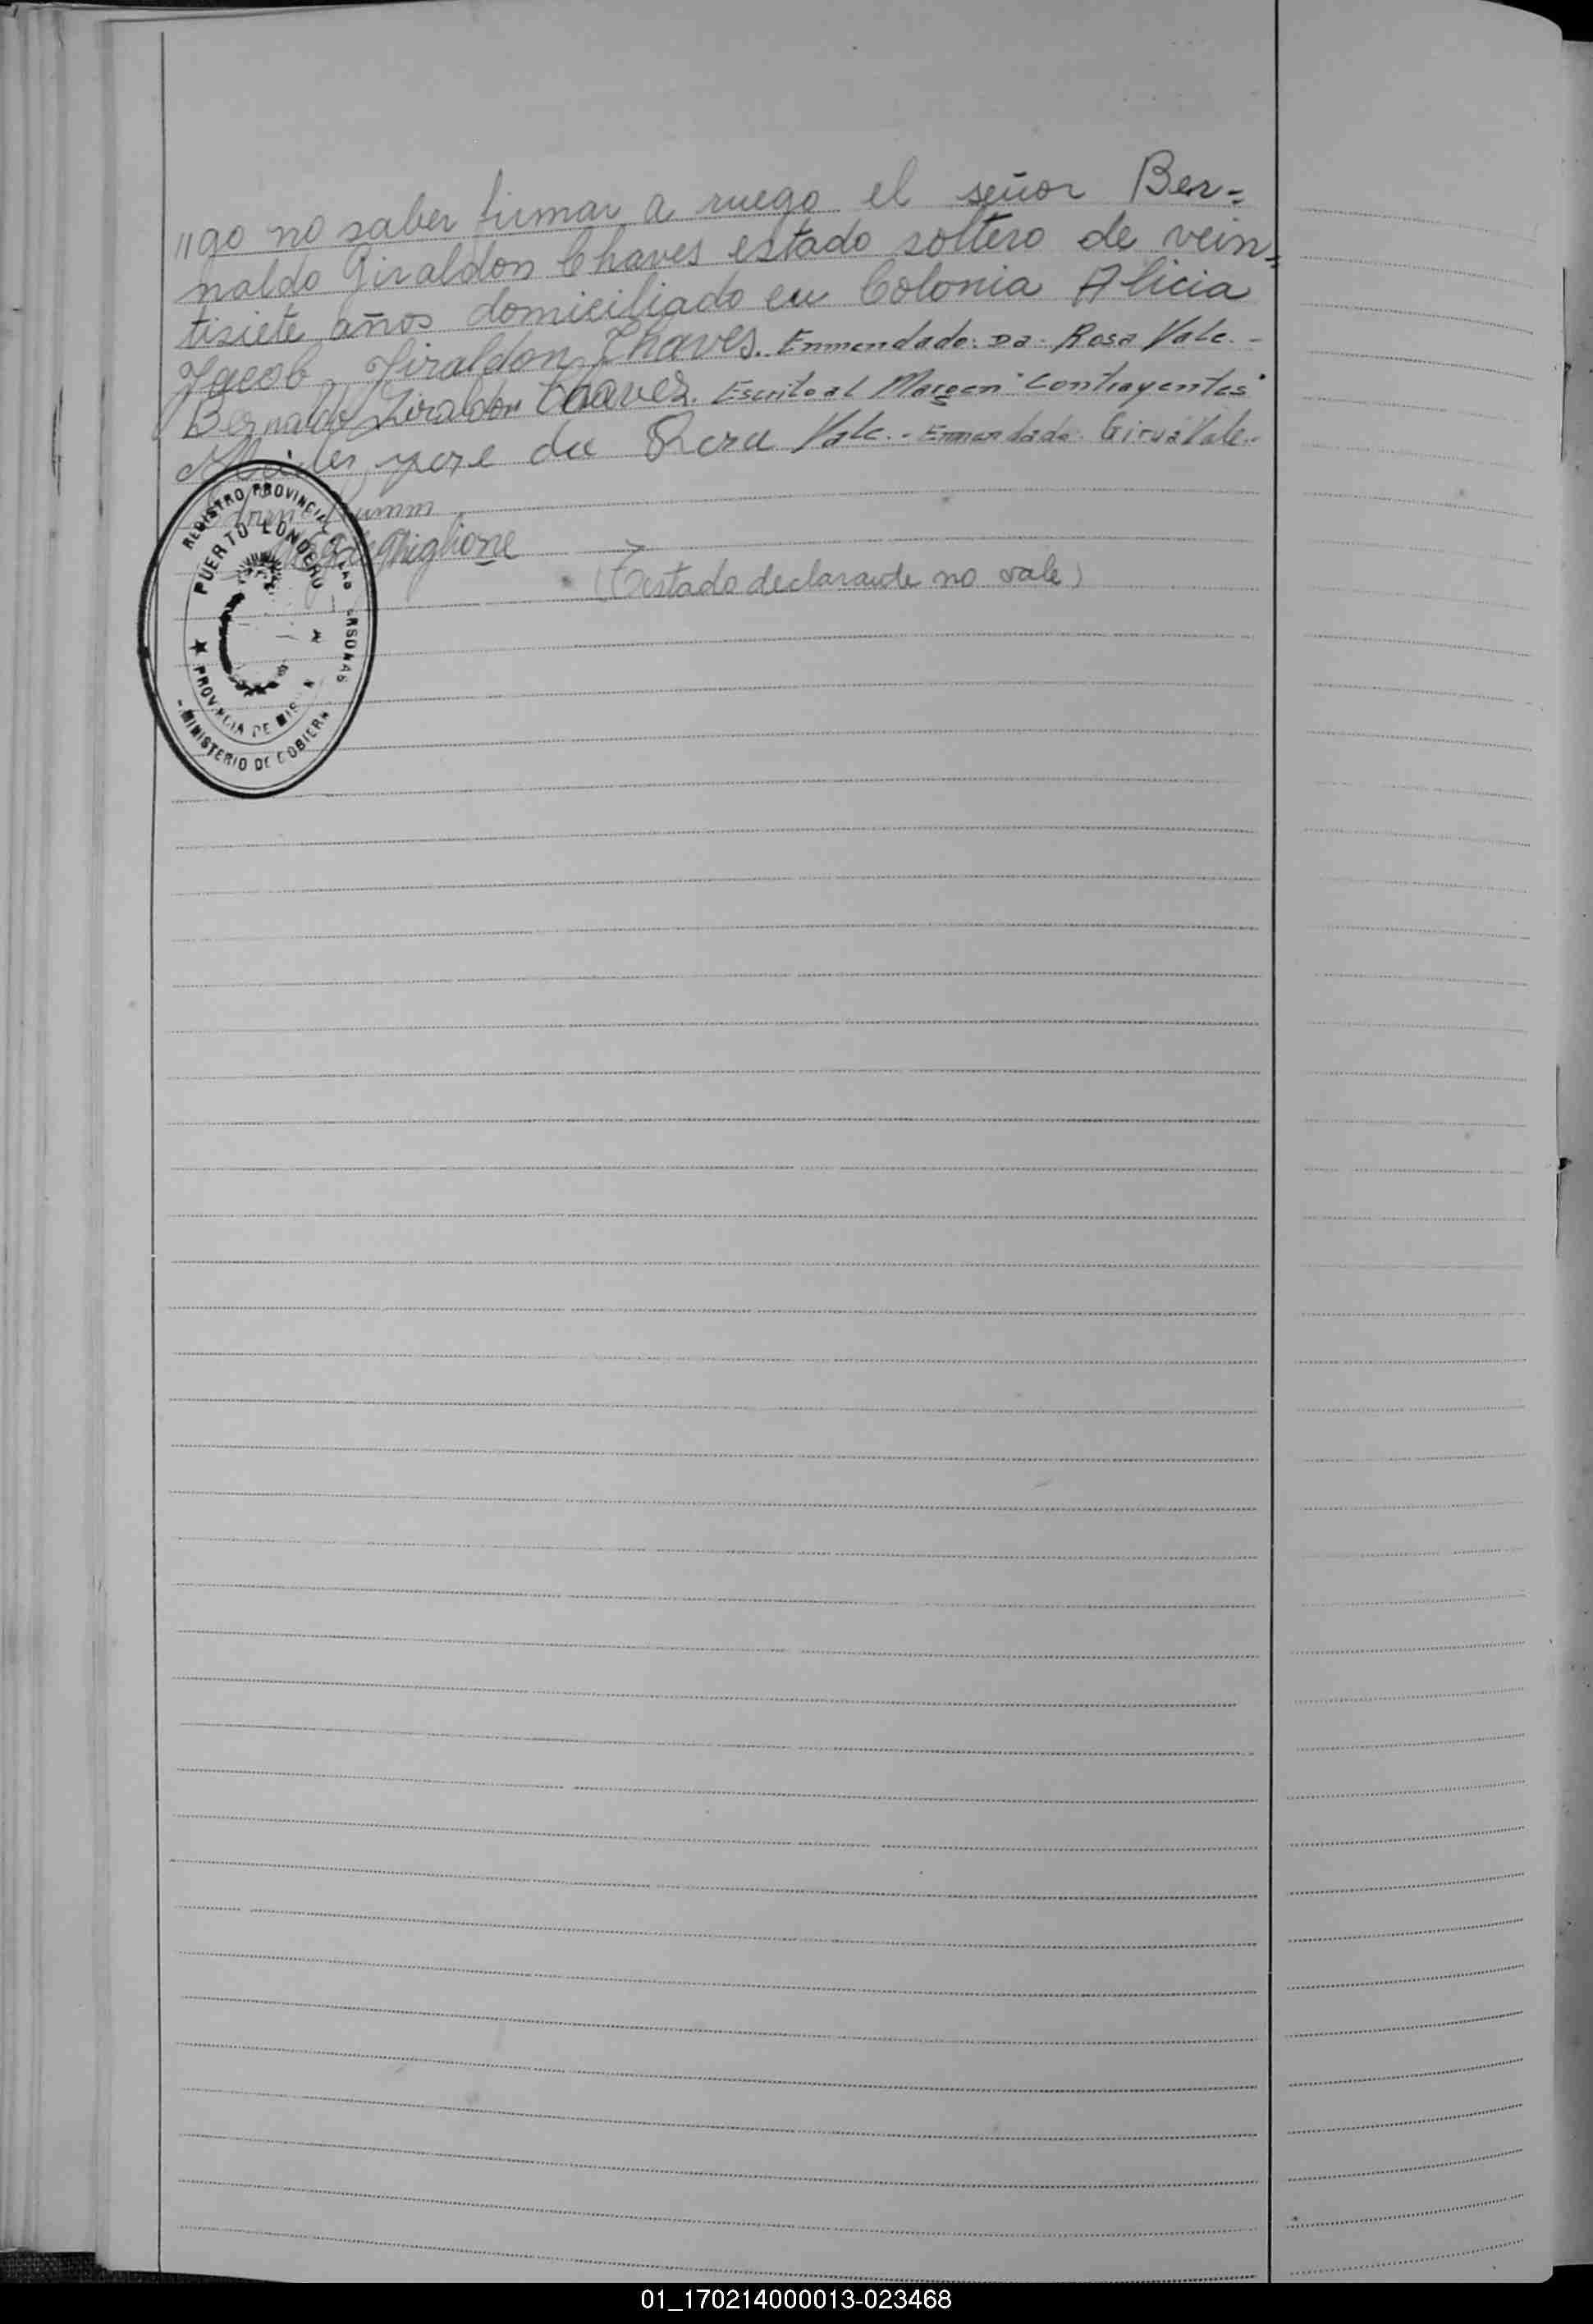 "go no saber firmar a ruego el señor Ber=
naldo Giraldon Chaves estado soltero de vein=
tisiete años domiciliado en Colonia Alicia
Jacob Jiraldon Chaves. Enmendado: Da Rosa Vale.-
Bernaldo Jiraldon Chavez. Escrito al Margen "Contrayentes"
da Rosa Vale.- Enmendado: Girua Vale.-
Ghiglione
(Testado declarante no vale)
REGISTRO PROVINCIAL
PUERTO LONDERO
PROVINCIA DE MIS
MINISTERIO DE GOBIERN
01_170214000013-023468